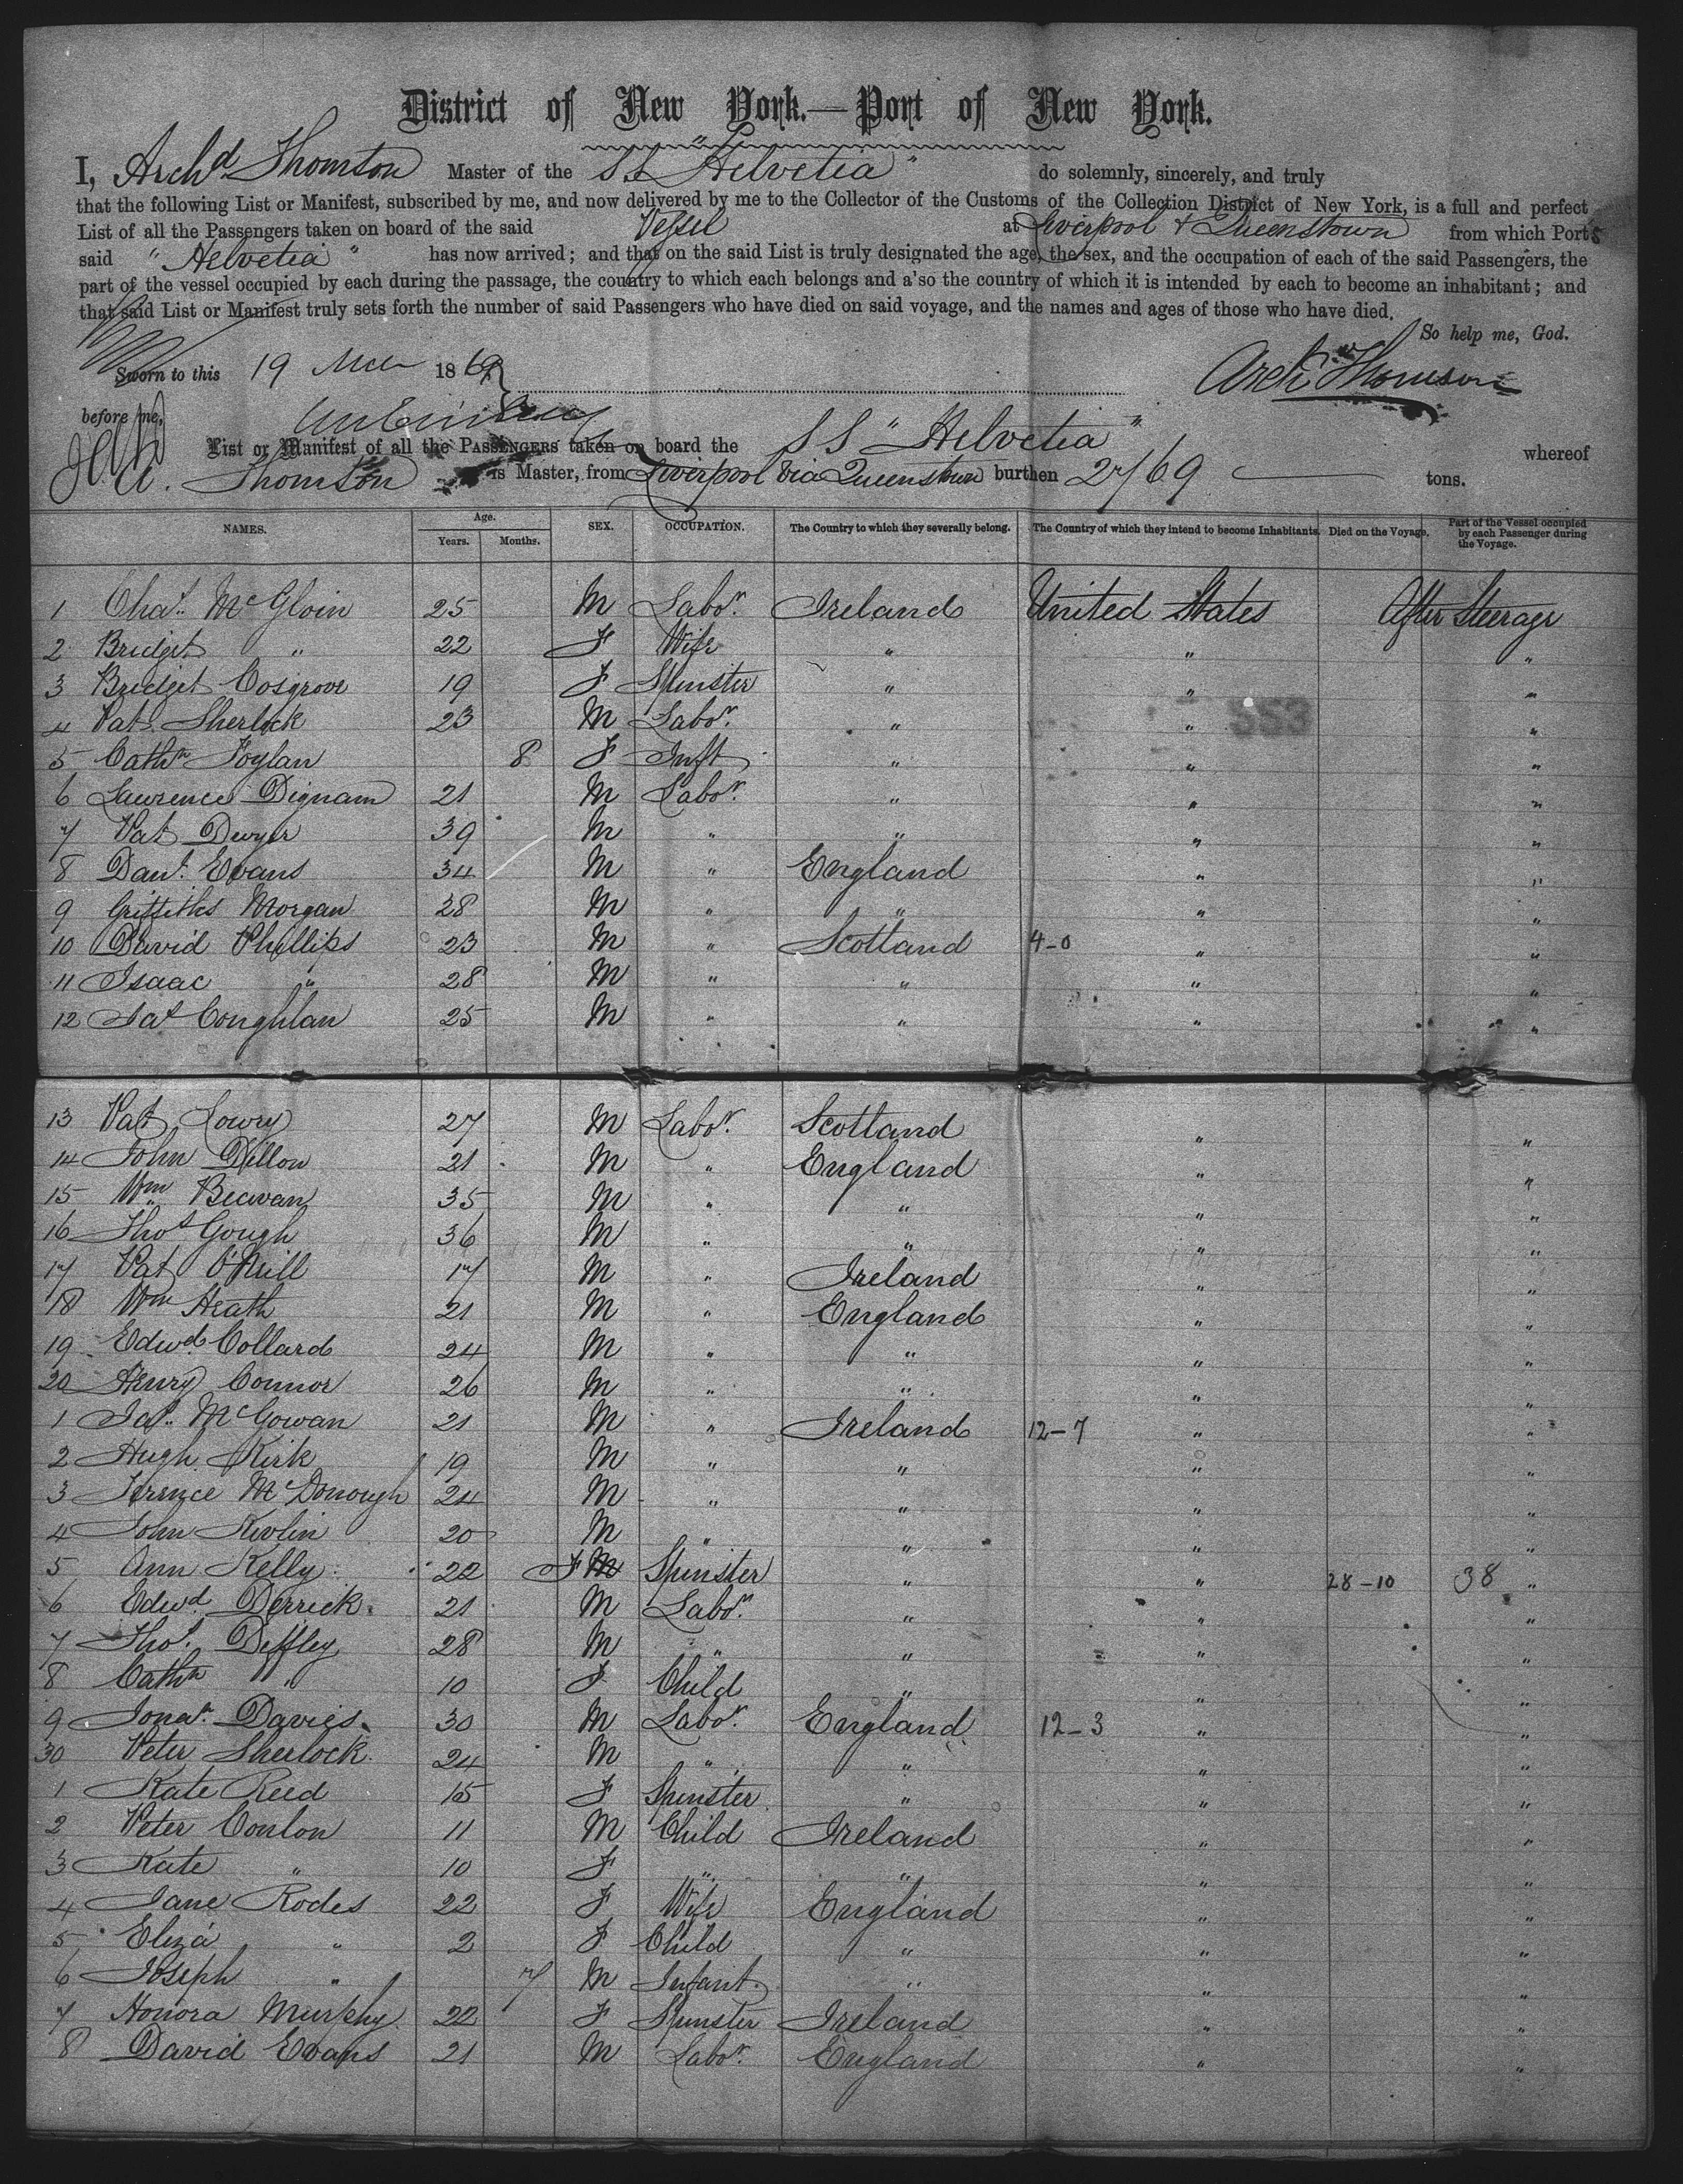 District of New York.—Port of New York.
I, Archd Thomson Master of the S.S. "Helvetia" do solemnly, sincerely, and truly
that the following List or Manifest, subscribed by me, and now delivered by me to the Collector of the Customs of the Collection District of New York, is a full and perfect
List of all the Passengers taken on board of the said Vessel at Liverpool & Queenstown from which Ports
said "Helvetia" has now arrived; and that on the said List is truly designated the age, the sex, and the occupation of each of the said Passengers, the
part of the vessel occupied by each during the passage, the country to which each belongs and a'so the country of which it is intended by each to become an inhabitant; and
that said List or Manifest truly sets forth the number of said Passengers who have died on said voyage, and the names and ages of those who have died.
So help me, God.
Sworn to this 19 1869 Archd Thomson
before me,
List or Manifest of all the PASSENGERS taken on board the SS "Helvetia" whereof
A. Thomson is Master, from Liverpool via Queenstown burthen 2769 tons.
NAMES. Age. Years. Months. SEX. OCCUPATION. The Country to which they severally belong. The Country of which they intend to become Inhabitants. Died on the Voyage. Part of the Vessel occupied by each Passenger during the Voyage.
1 Chas. McGloin 25 M Labor. Ireland United States After Steerage
2 Bridget " 22 F Wife " " "
3 Bridget Cosgrove 19 F Spinster " " "
4 Pat. Sherlock 23 M Labor. " " 553 "
5 Cathn Foylan 8 F Inft " " "
6 Lawrence Dignam 21 M Labor. " " "
7 Pat Dwyer 39 M " " " "
8 Danl. Evans 34 M " England " "
9 Griffiths Morgan 28 M " " " "
10 David Phillips 23 M " Scotland 4-0 " "
11 Isaac " 28 M " " " "
12 Jas Coughlan 25 M " " " "
13 Pat Lowry 27 M Labor. Scotland " "
14 John Dillon 21 M " England " "
15 Wm Beavan 35 M " " " "
16 Thos Gough 36 M " " " "
17 Pat O'Neill 17 M " Ireland " "
18 Wm Heath 21 M " England " "
19 Edwd Collard 24 M " " " "
20 Henry Connor 26 M " " " "
1 Jas. McGowan 21 M " Ireland 12-7 " "
2 Hugh Kirk 19 M " " " "
3 Terence McDonough 24 M " " " "
4 John Kivlin 20 M " " " "
5 Ann Kelly 22 F M Spinster " " 28-10 38 "
6 Edwd. Derrick 21 M Labor. " " "
7 Thos. Deffley 28 M " " " "
8 Cathn " 10 F Child " " "
9 Jonan. Davies 30 M Labor. England 12-3 " "
30 Peter Sherlock 24 M " " " "
1 Kate Reed 15 F Spinster " " "
2 Peter Conlon 11 M Child Ireland " "
3 Kate " 10 F " " " "
4 Jane Rodes 22 F Wife England " "
5 Eliza " 2 F Child " " "
6 Joseph " 7 M Infant " " "
7 Honora Murphy 22 F Spinster Ireland " "
8 David Evans 21 M Labor. England " "